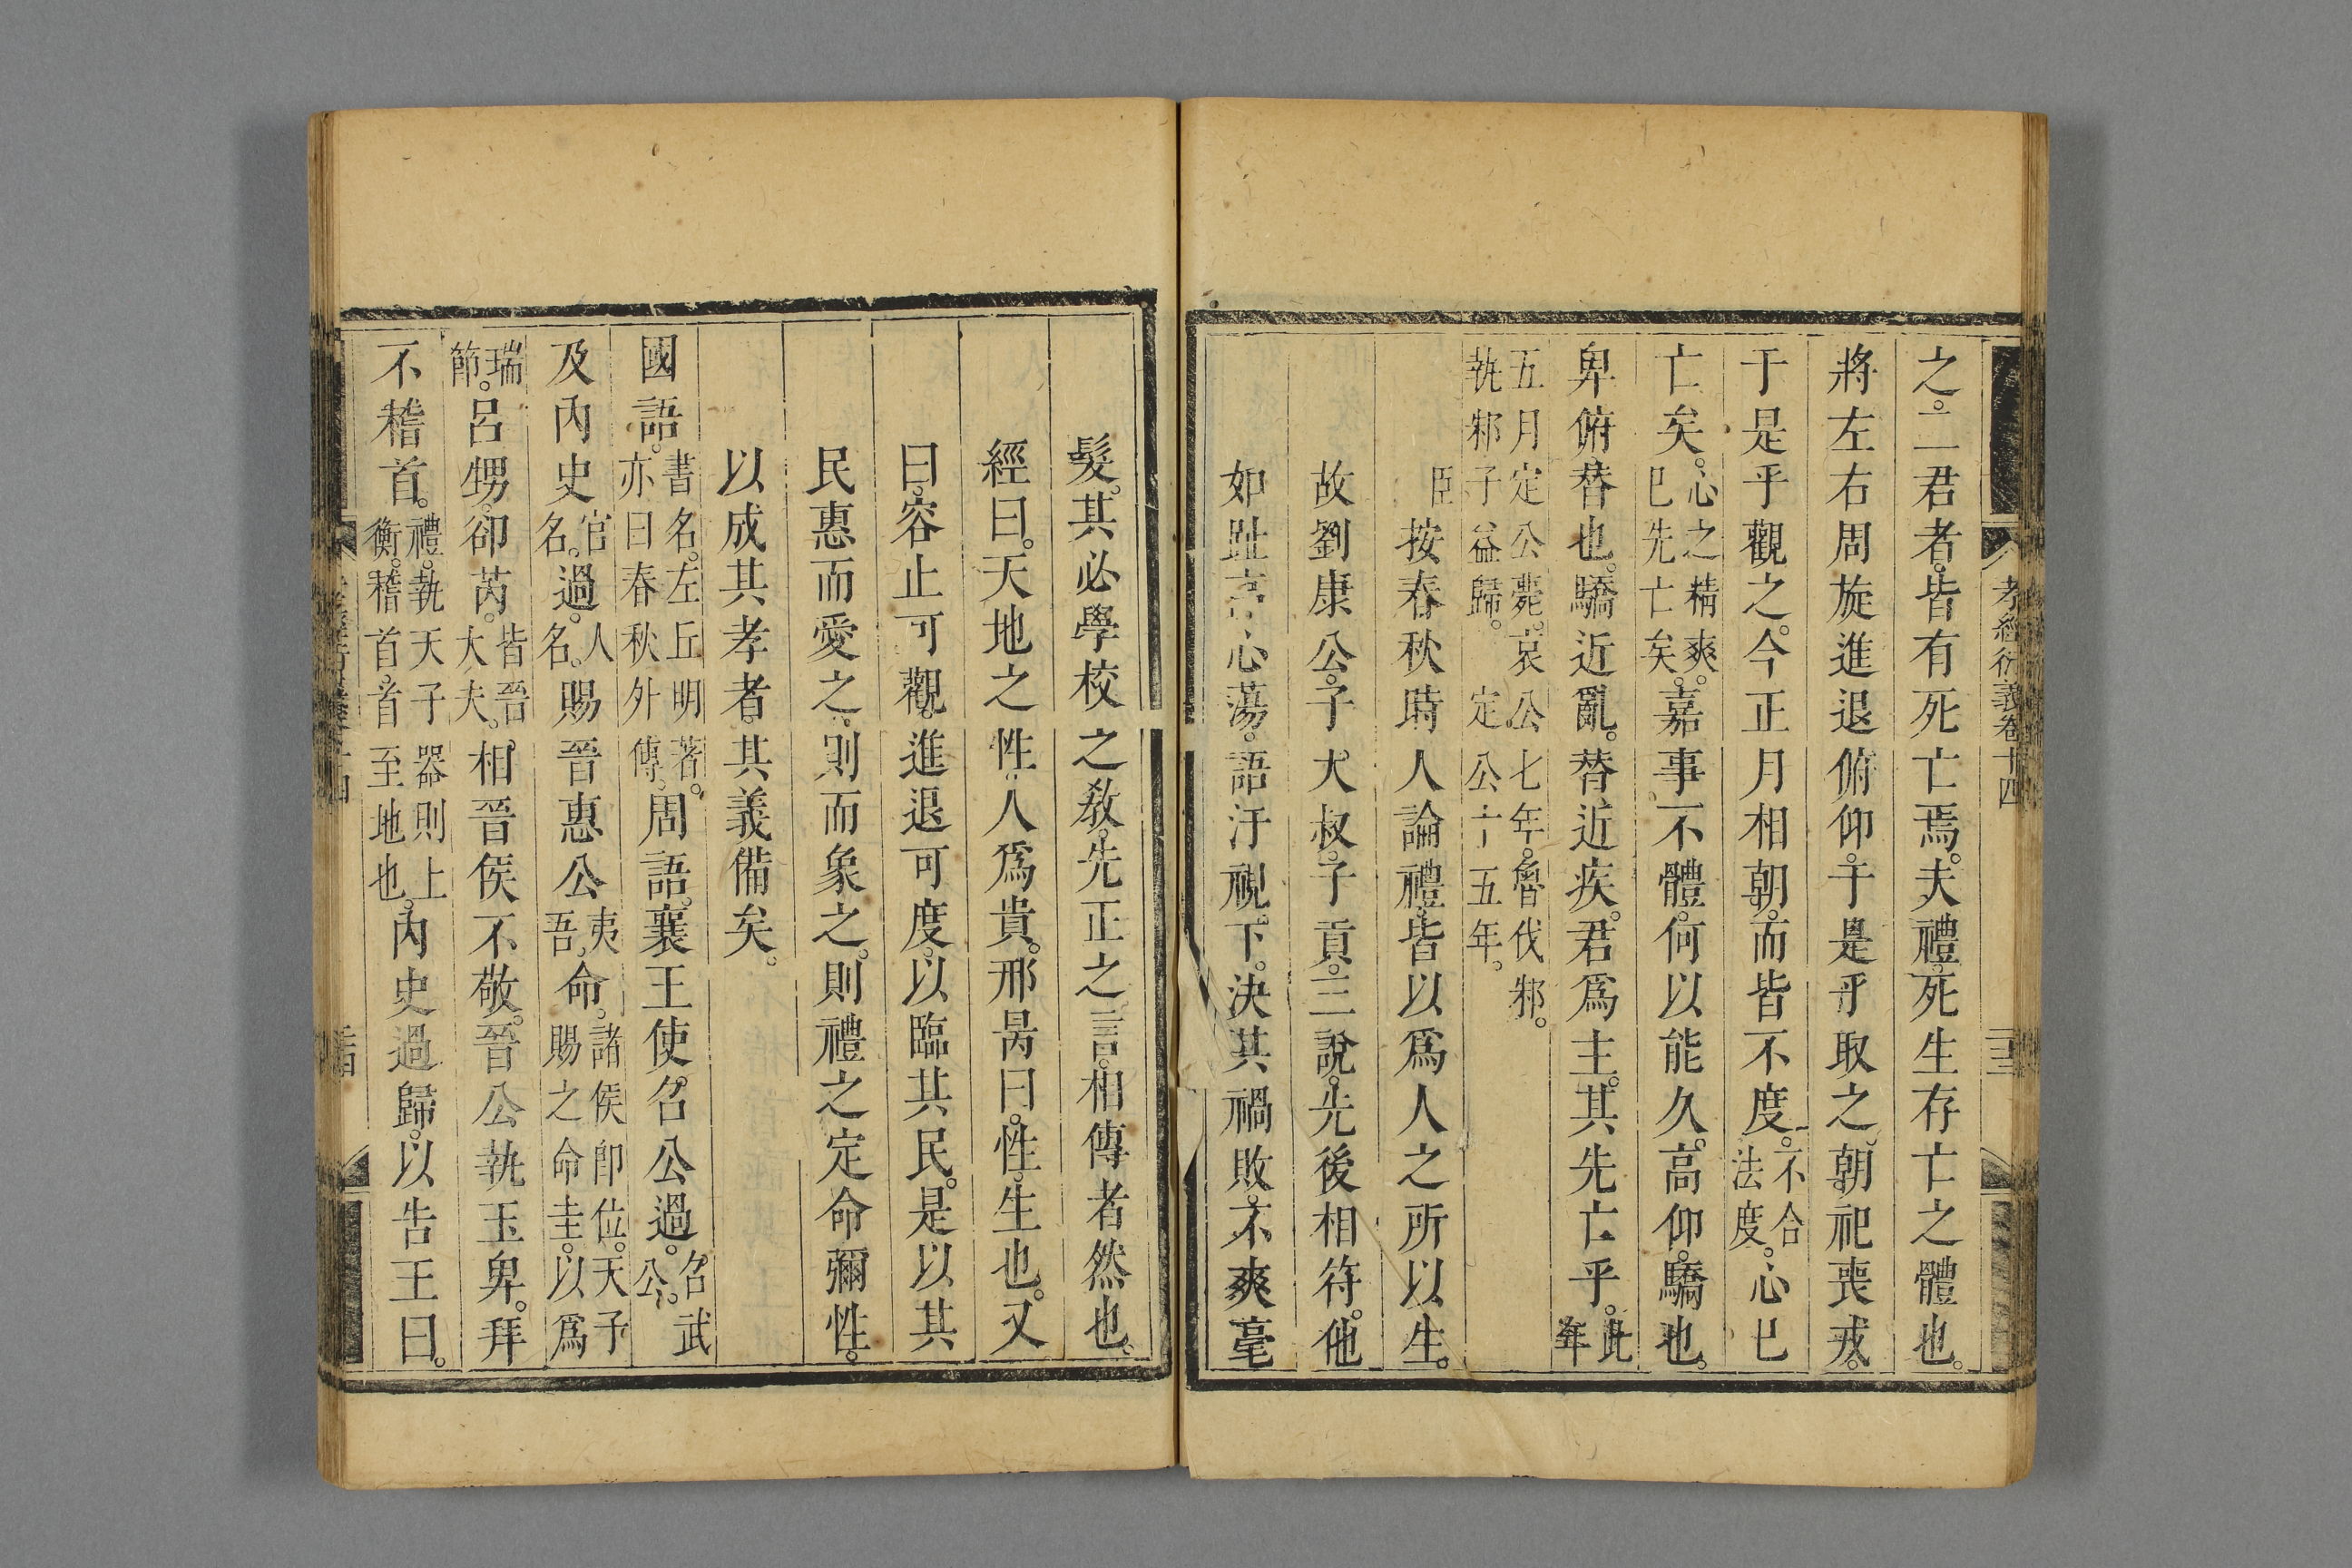 孝經衍義卷十四
三三
之。二君者。皆有死亡焉。夫禮。死生存亡之體也。
將左右周旋。進退俯仰。于是乎取之。朝祀喪戎。
于是乎觀之。今正月相朝。而皆不度。不合法度。心巳
亡矣。心之精爽。巳先亡矣。嘉事不體。何以能久。高仰。驕也。
卑俯。替也。驕近亂。替近疾。君爲主。其先亡乎。此年
五月定公薨。哀公七年。魯伐邾。執邾子益歸。定公十五年。
臣按春秋時人論禮。皆以爲人之所以生。
故劉康公。子大叔。子貢。三說。先後相符。他
如趾高心蕩。語汙視下。決其禍敗。不爽毫
髮。其必學校之敎。先正之言。相傳者然也。
經曰。天地之性。人爲貴。邢昺曰。性。生也。又
曰。容止可觀。進退可度。以臨其民。是以其
民惠而愛之。則而象之。則禮之定命彌性。
以成其孝者。其義備矣。
國語。書名。左丘明著。亦曰春秋外傳。周語。襄王使召公過。召武公。
及內史官名。過。人名。賜晉惠公夷吾。命。諸侯卽位。天子賜之命圭。以爲
瑞節。呂甥。卻芮。皆晉大夫。相晉侯不敬。晉公執玉卑。拜
不稽首。禮。執天子器則上衡。稽首。首至地也。內史過歸。以告王曰。